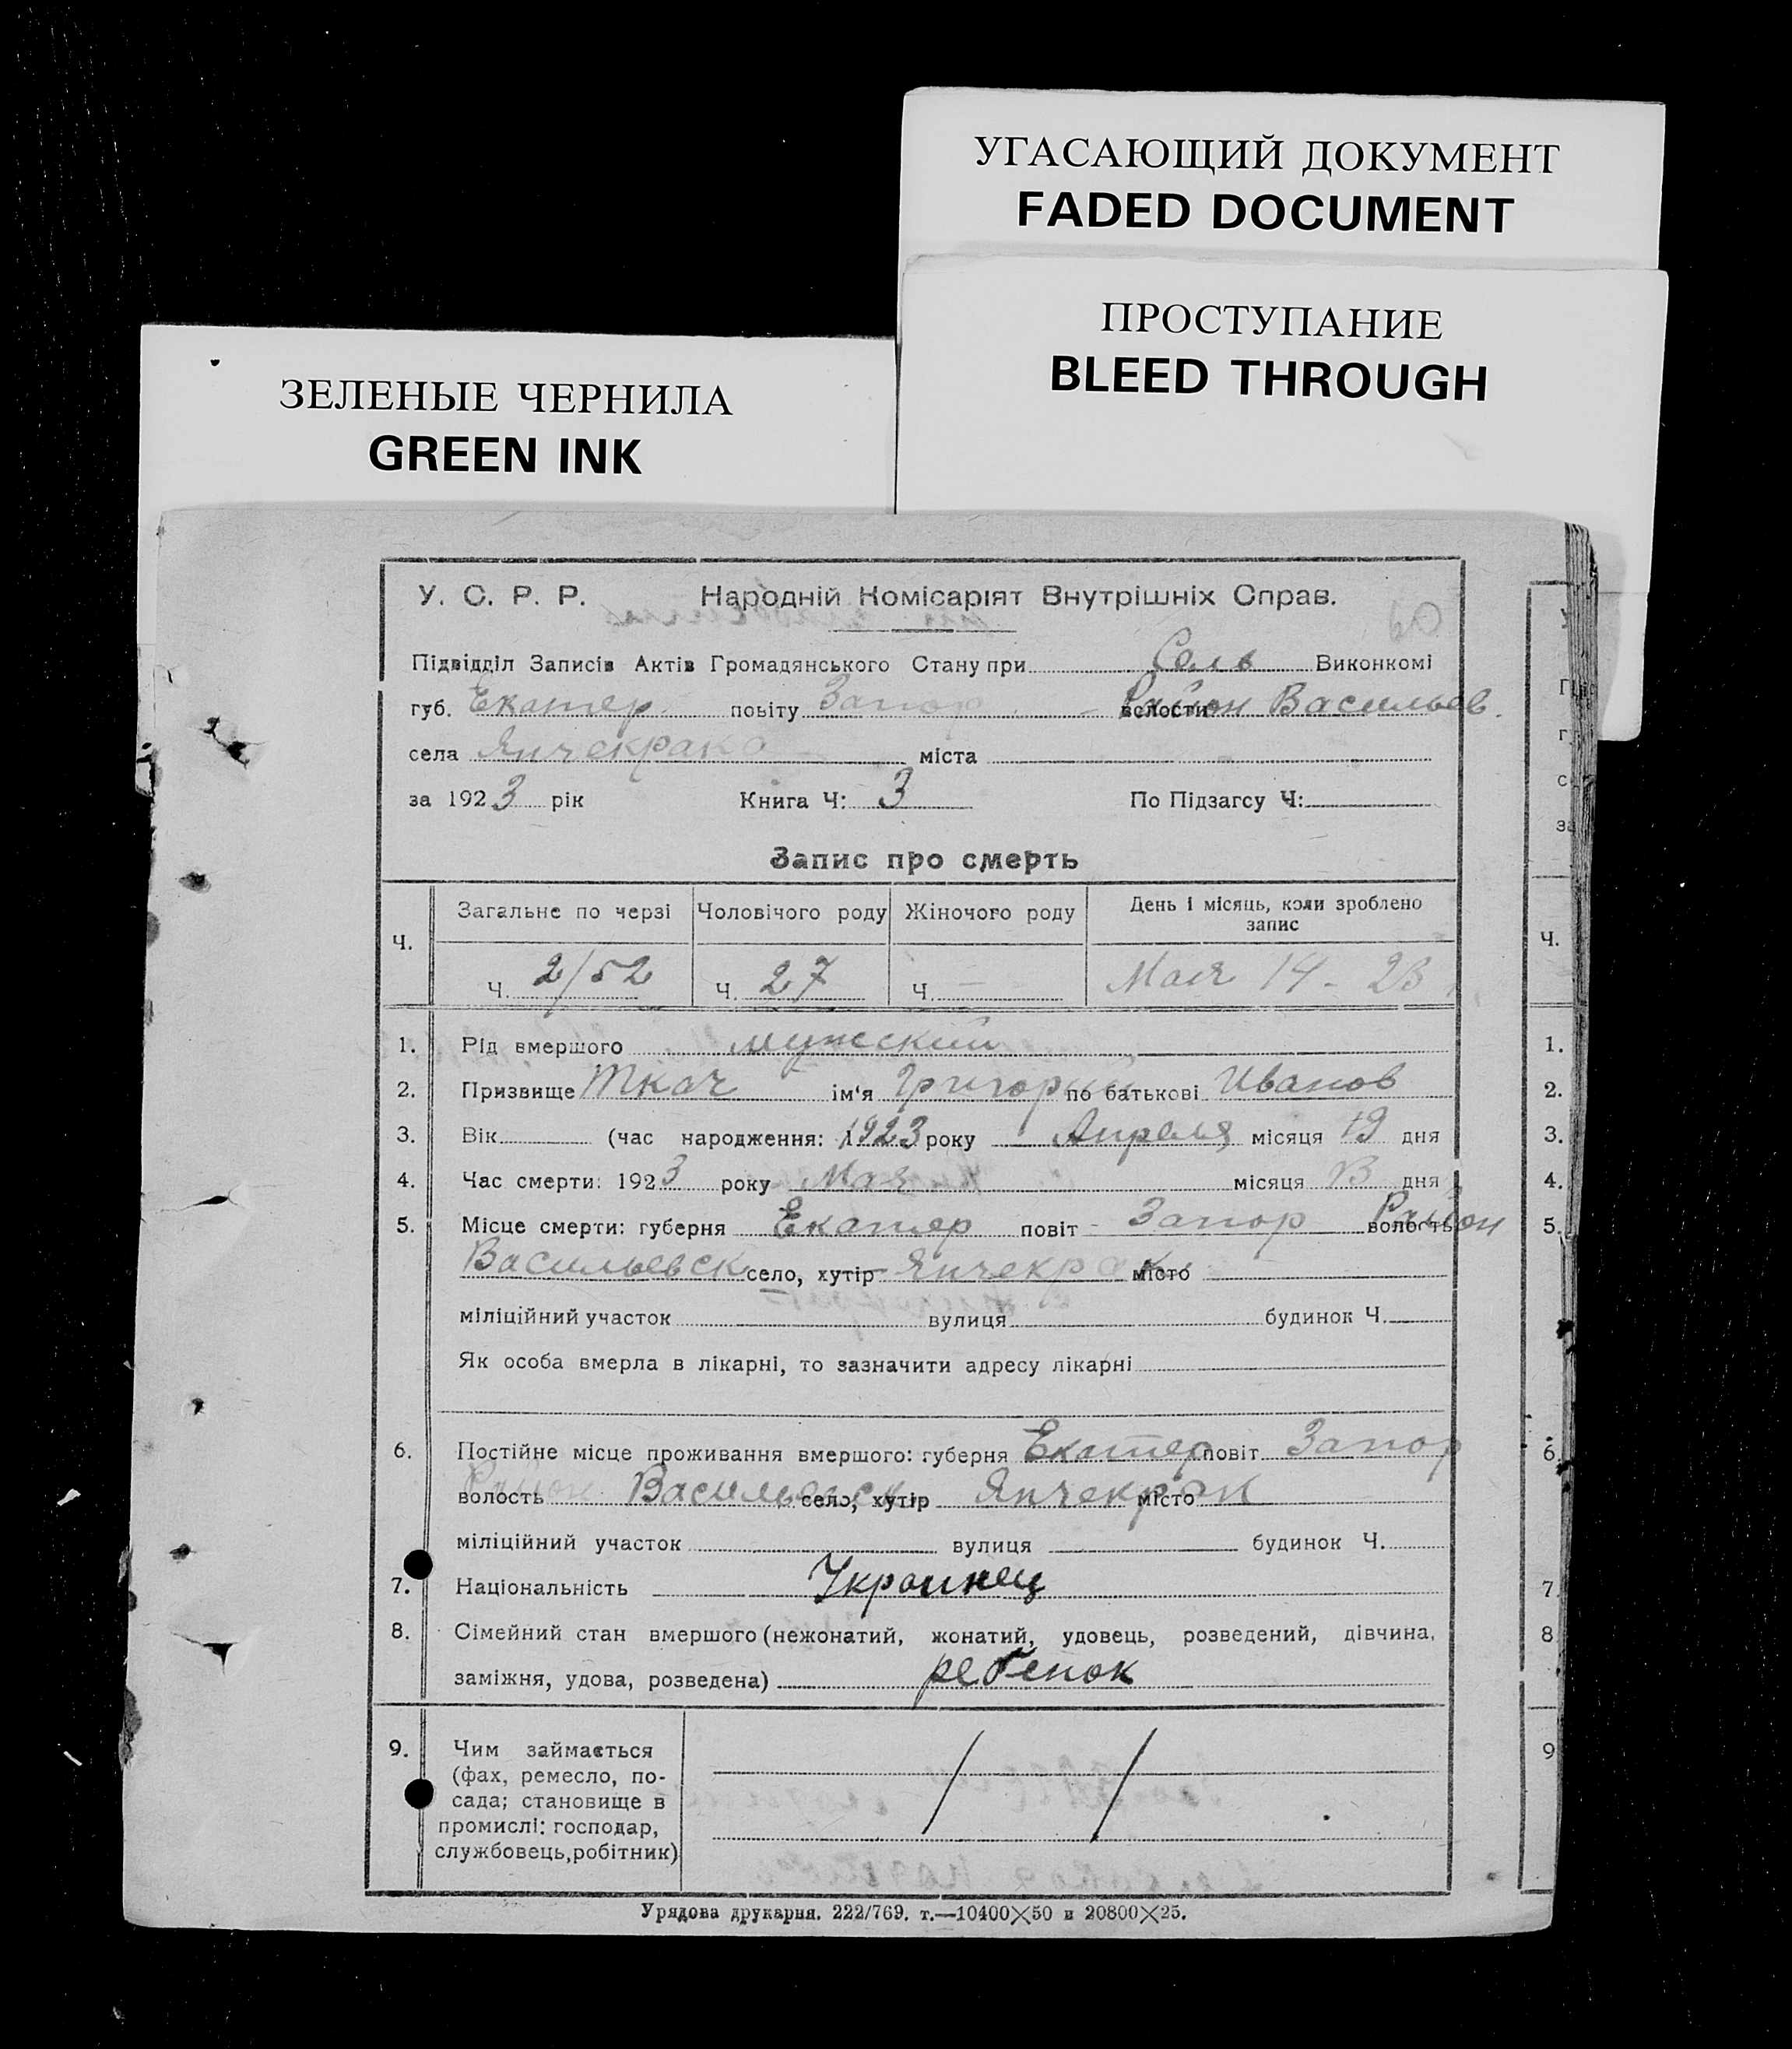 УГАСАЮЩИЙ ДОКУМЕНТ
FADED DOCUMENT
ПРОСТУПАНИЕ
BLEED THROUGH
ЗЕЛЕНЫЕ ЧЕРНИЛА
GREEN INK
У. С. Р. Р. Народній Комісаріят Внутрішніх Справ.
Підвідділ Записів Актів Громадянського Стану при Сель Виконкомі
губ. Екатер. повіту Запор волости Район Васильев.
села Янчекрака міста
за 1923 рік Книга Ч: 3 По Підзагсу Ч:
Запис про смерть
Ч. Загальне по черзі Чоловічого роду Жіночого роду День і місяць, коли зроблено запис
Ч. 2/52 Ч. 27 Ч. — Мая 14 - 23
1. Рід вмершого мужский
2. Призвище Ткач ім'я Григорий по батькові Иванов
3. Вік (час народження: 1923 року Апреля місяця 19 дня
4. Час смерти: 1923 року Мая місяця 13 дня
5. Місце смерти: губерня Екатер повіт - Запор волость Район
Васильевск село, хутір Янчекрак місто
міліційний участок вулиця будинок Ч.
Як особа вмерла в лікарні, то зазначити адресу лікарні
6. Постійне місце проживання вмершого: губерня Екатер повіт Запор
волость Район Васильевск село, хутір Янчекрак місто
міліційний участок вулиця будинок Ч.
7. Національність Украинец
8. Сімейний стан вмершого (нежонатий, жонатий, удовець, розведений, дівчина,
заміжня, удова, розведена) ребенок
9. Чим займається
(фах, ремесло, по-
сада; становище в
промислі: господар,
службовець, робітник)
Урядова друкарня. 222/769. т.—10400×50 и 20800×25.
Ч.
1.
2.
3.
4.
5.
6.
7
8
9